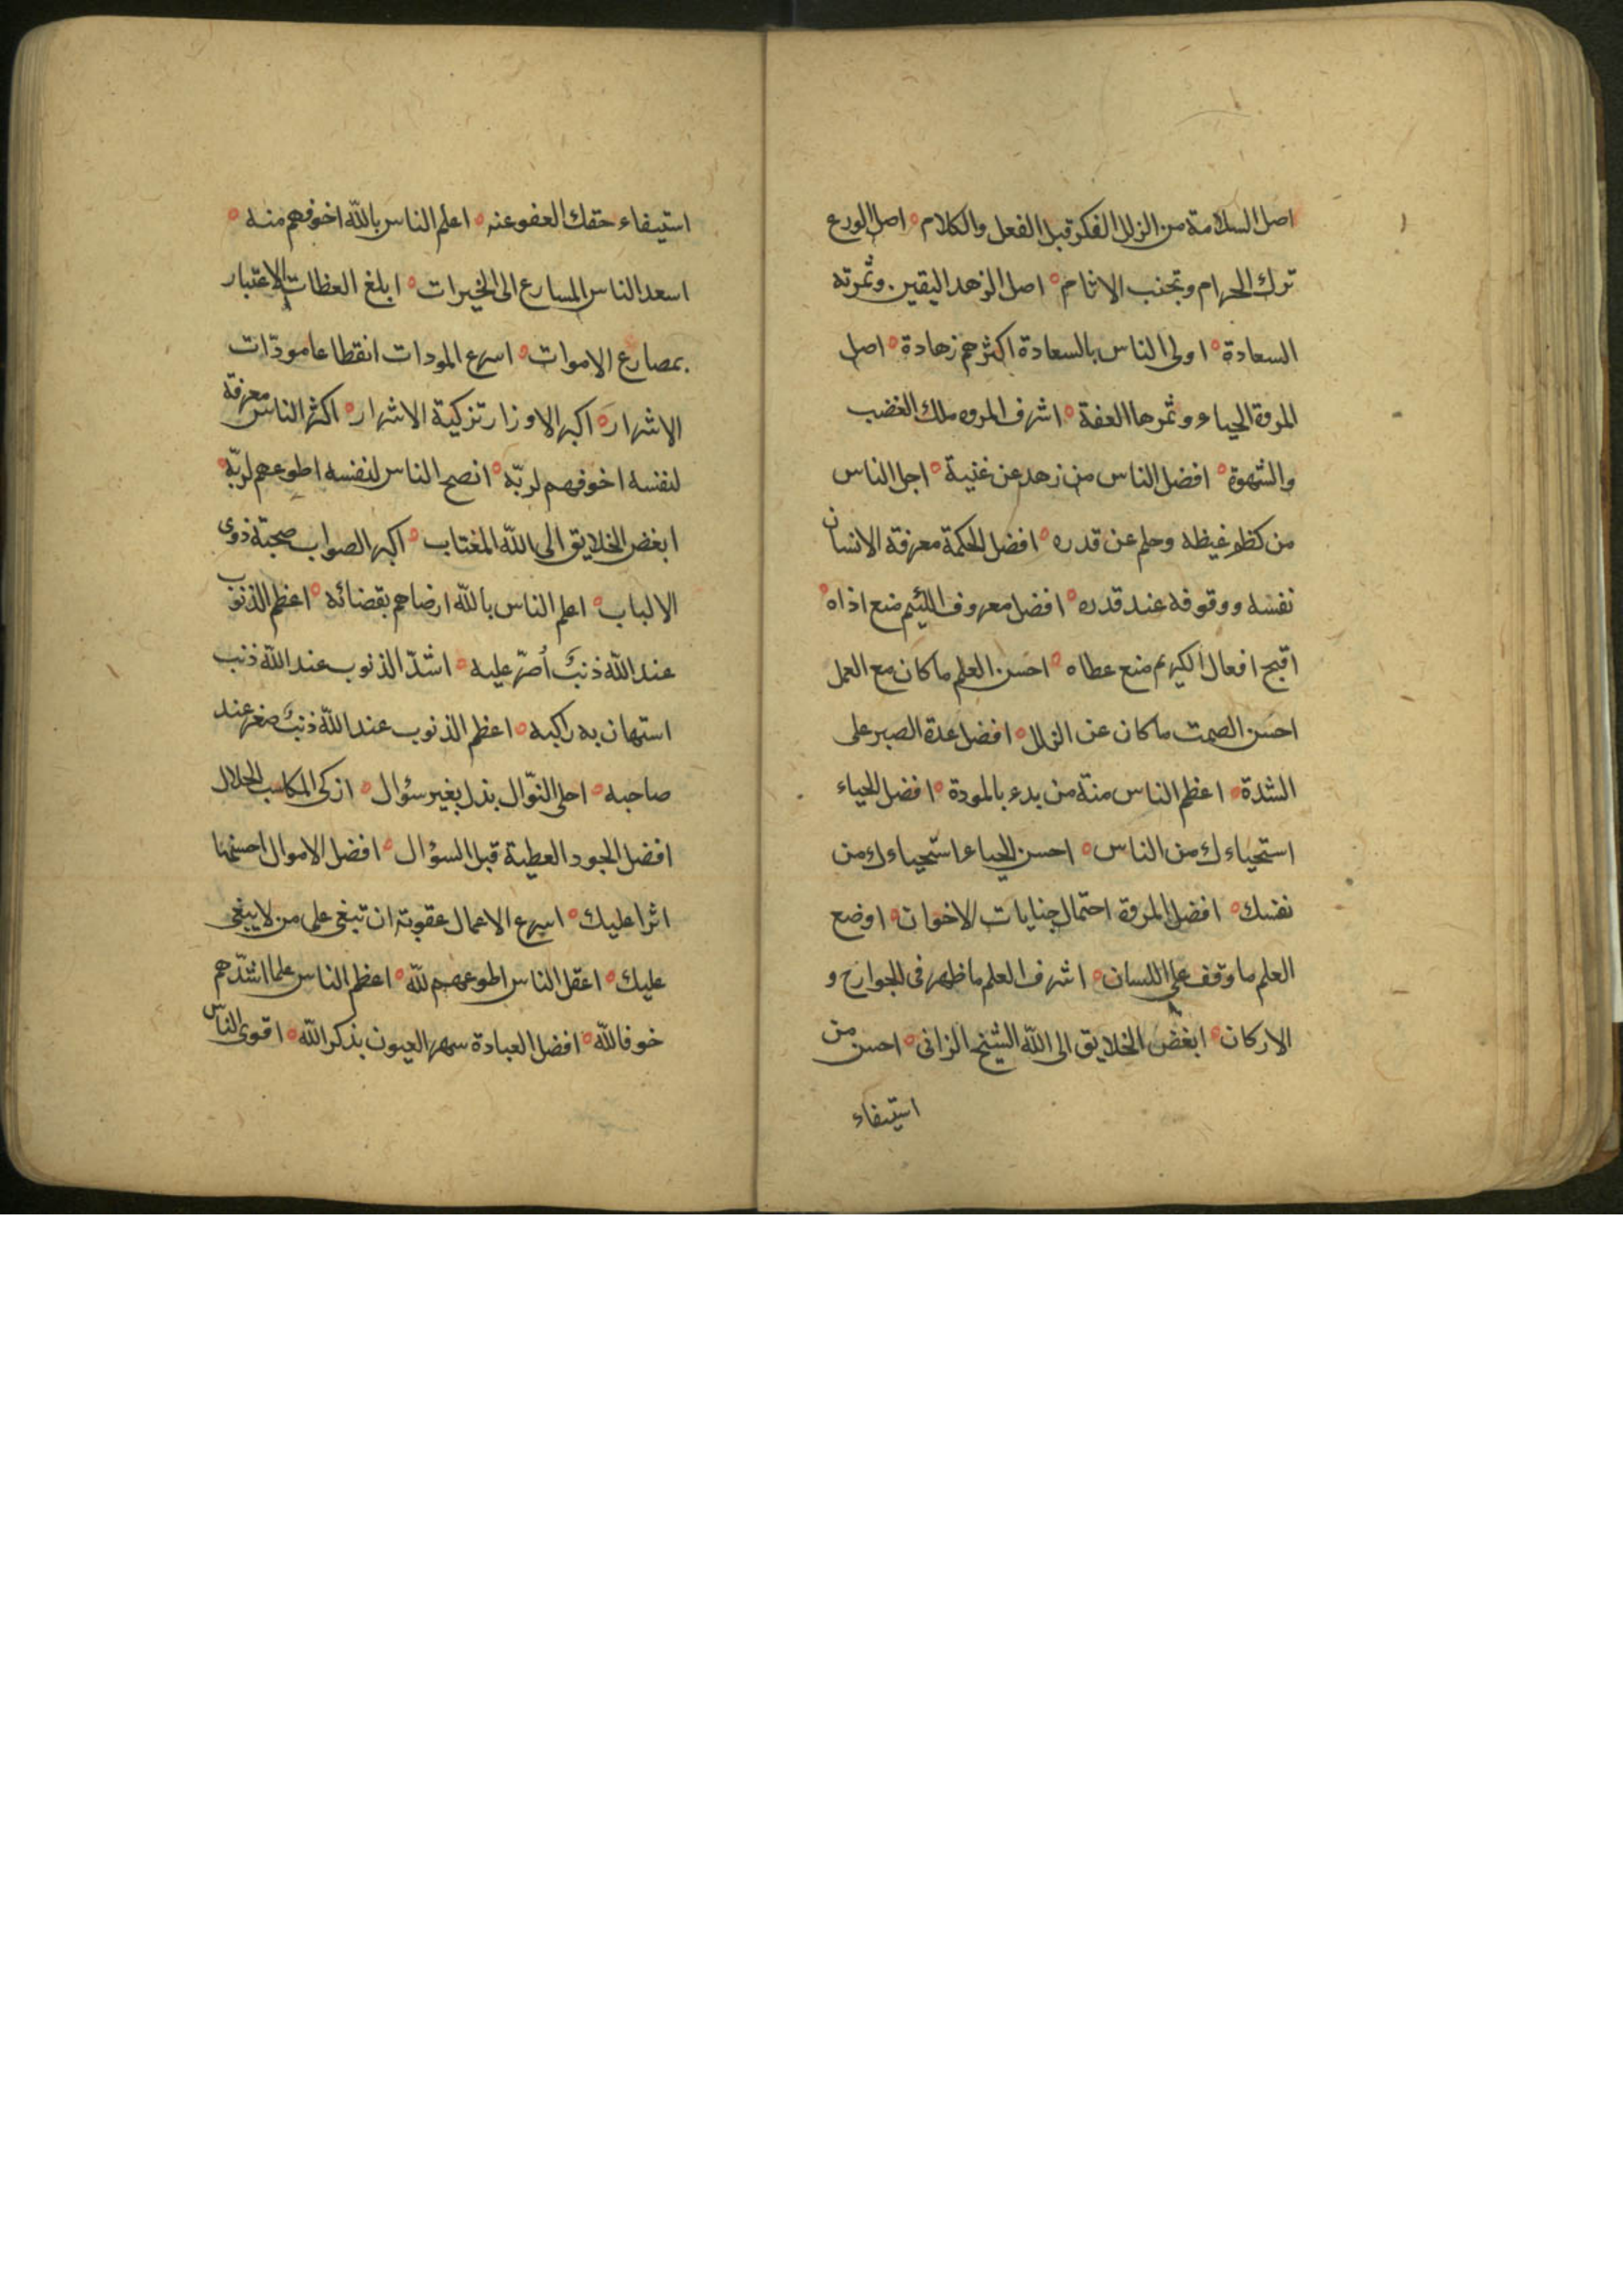 اصل السلامة من الزلل الفكر قبل الفعل والكلام ه اصل الورع
ترك الحرام وتجنب الاثام ه اصل الزهد اليقين. وثمرته
السعادة ه اولى الناس بالسعادة اكثرهم زهادة ه اصل
المروة الحياء وثمرها العفة ه اشرف المروه ملك الغضب
والشهوة ه افضل الناس من زهد عن غنية ه اجل الناس
من كظم غيظه وحلم عن قدره ه افضل الحكمة معرفة الانسان
نفسه ووقوفه عند قدره ه افضل معروف اللئيم منع اذاه ه
اقبح افعال الكريم منع عطاه ه احسن العلم ما كان مع العمل
احسن الصمت ما كان عن الزلل ه افضل عدة الصبر على
الشدة ه اعظم الناس منة من بدء بالمودة ه افضل الحياء
استحياءك من الناس ه احسن الحياء استحياءك من
نفسك ه افضل المروة احتمال جنايات الاخوان ه اوضع
العلم ما وقف على اللسان ه اشرف العلم ما ظهر فى الجوارح و
الاركان ه ابغض الخلايق الى الله الشيخ الزانى ه احسن من
استيفاء
استيفاء حقك العفو عنه ه اعلم الناس بالله اخوفهم منه ه
اسعد الناس المسارع الى الخيرات ه ابلغ العظات الاعتبار
بمصارع الاموات ه اسرع المودات انقطاعا مودّات
الاشرار ه اكبر الاوزار تزكية الاشرار ه اكثر الناس معرفة
لنفسه اخوفهم لربّه ه انصح الناس لنفسه اطوعهم لربّه ه
ابغض الخلايق الى الله المغتاب ه اكبر الصواب صحبة ذوى
الالباب ه اعلم الناس بالله ارضاهم بقضائه ه اعظم الذنوب
عند الله ذنب أصرّ عليه ه اشدّ الذنوب عند الله ذنب
استهان به راكبه ه اعظم الذنوب عند الله ذنب صغر عند
صاحبه ه احلى النوّال بذل بغير سؤال ه ازكى المكاسب الحلال
افضل الجود العطية قبل السؤال ه افضل الاموال احسنها
اثرا عليك ه اسرع الاعمال عقوبة ان تبغى على من لا يبغى
عليك ه اعقل الناس اطوعهم لله ه اعظم الناس علما اشدّهم
خوفا لله ه افضل العبادة سهر العيون بذكر الله ه اقوى الناس